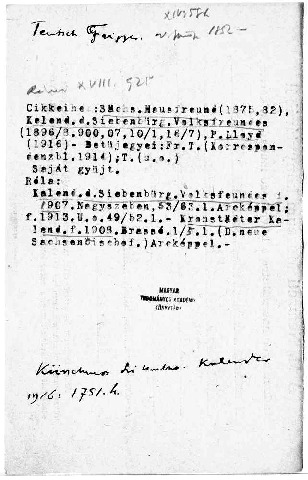 Teutsch
1852 –
XVIII. 925
Cikkeihez: Sächs. Hausfreund (1875, 82),
Kalend. d. Siebenbürg. Volksfreundes
(1896/8. 900, 07, 10/1, 16/7), P. Lloyd
(1916)- Betüjegyei: Fr. T. (Korrespon-
denzbl. 1914); T. (u. o.)
Saját gyüjt.
Róla:
Kalend. d. Siebenbürg. Volksfreundes f.
1907. Nagyszeben, 53/63. l. Arcképpel;
f. 1913. U. o. 49/52. l. – Kronstädter Ka-
lend. f. 1908. Brassó. 1/5. l. (D. neue
Sachsenbischof.) Arcképpel.-
MAGYAR
TUDOMÁNYOS AKADÉMIA
KÖNYVTÁRA
Kalender
1916. 1791. h.